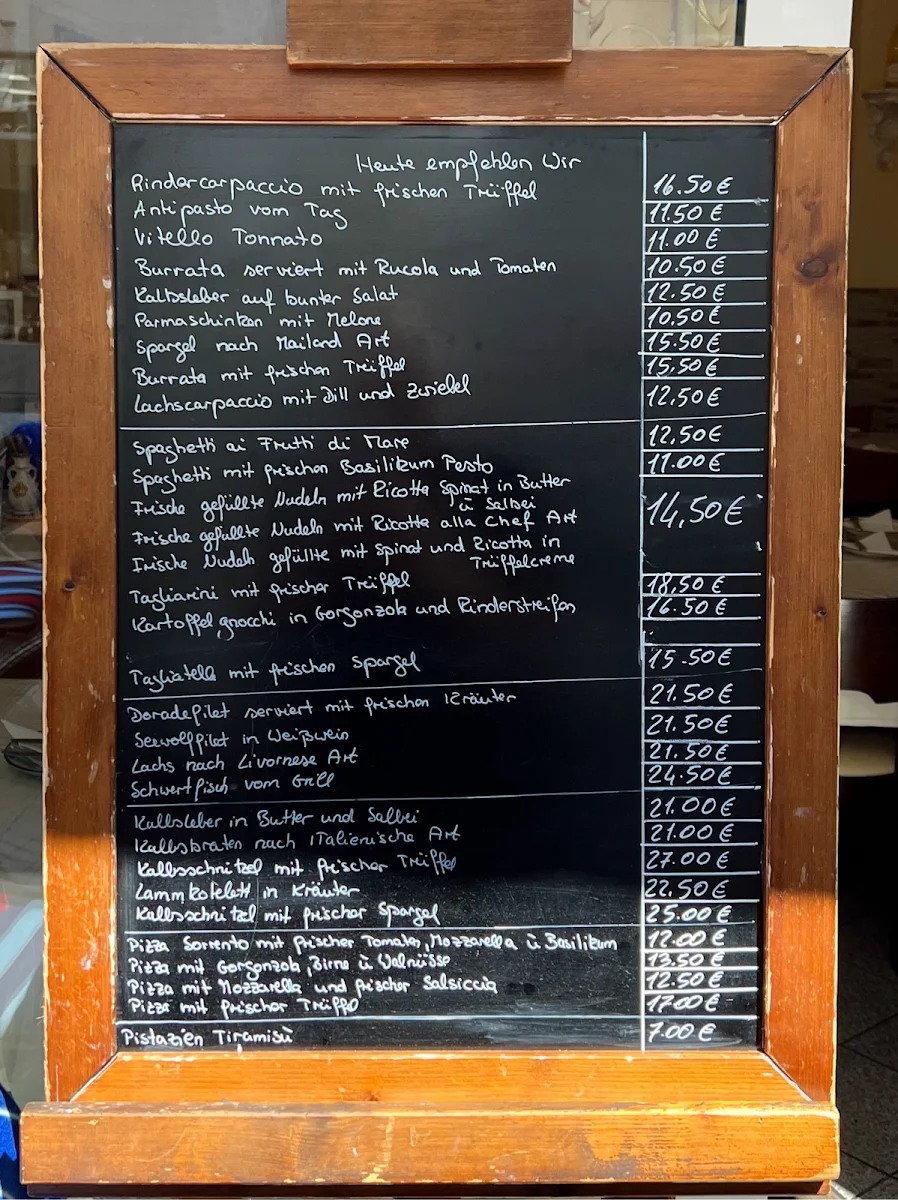 Heute empfehlen Wir
Rindercarpaccio mit frischen Trüffel 16.50 €
Antipasto vom Tag 11.50 €
Vitello Tonnato 11.00 €
Burrata serviert mit Rucola und Tomaten 10.50 €
Kalbsleber auf bunter Salat 12.50 €
Parmaschinken mit Melone 10.50 €
Spargel nach Mailand Art 15.50 €
Burrata mit frischen Trüffel 15.50 €
Lachscarpaccio mit Dill und zwiebel 12.50 €
Spaghetti ai Frutti di Mare 12.50 €
Spaghetti mit frischen Basilikum Pesto 11.00 €
Frische gefüllte Nudeln mit Ricotta Spinat in Butter
ü Salbei
Frische gefüllte Nudeln mit Ricotta alla Chef Art 14,50 €
Frische Nudeln gefüllte mit Spinat und Ricotta in
Trüffelcreme
Tagliarini mit frischer Trüffel 18.50 €
Kartoffel gnocchi in Gorgonzola und Rinderstreifen 16.50 €
Tagliatelle mit frischen Spargel 15.50 €
Doradefilet serviert mit frischen Kräuter 21.50 €
Seewolffilet in Weißwein 21.50 €
Lachs nach Livornese Art 21.50 €
Schwertfisch vom Grill 24.50 €
Kalbsleber in Butter und Salbei 21.00 €
Kalbsbraten nach Italienische Art 21.00 €
Kalbsschnitzel mit frischer Trüffel 27.00 €
Lammkotelett in Kräuter 22.50 €
Kalbsschnitzel mit frischer Spargel 25.00 €
Pizza Sorrento mit frischer Tomaten, Mozzarella ü Basilikum 12.00 €
Pizza mit Gorgonzola, Birne ü Walnüsse 13.50 €
Pizza mit Mozzarella und frischer Salsiccia 12.50 €
Pizza mit frischer Trüffel 17.00 €
Pistazien Tiramisù 7.00 €